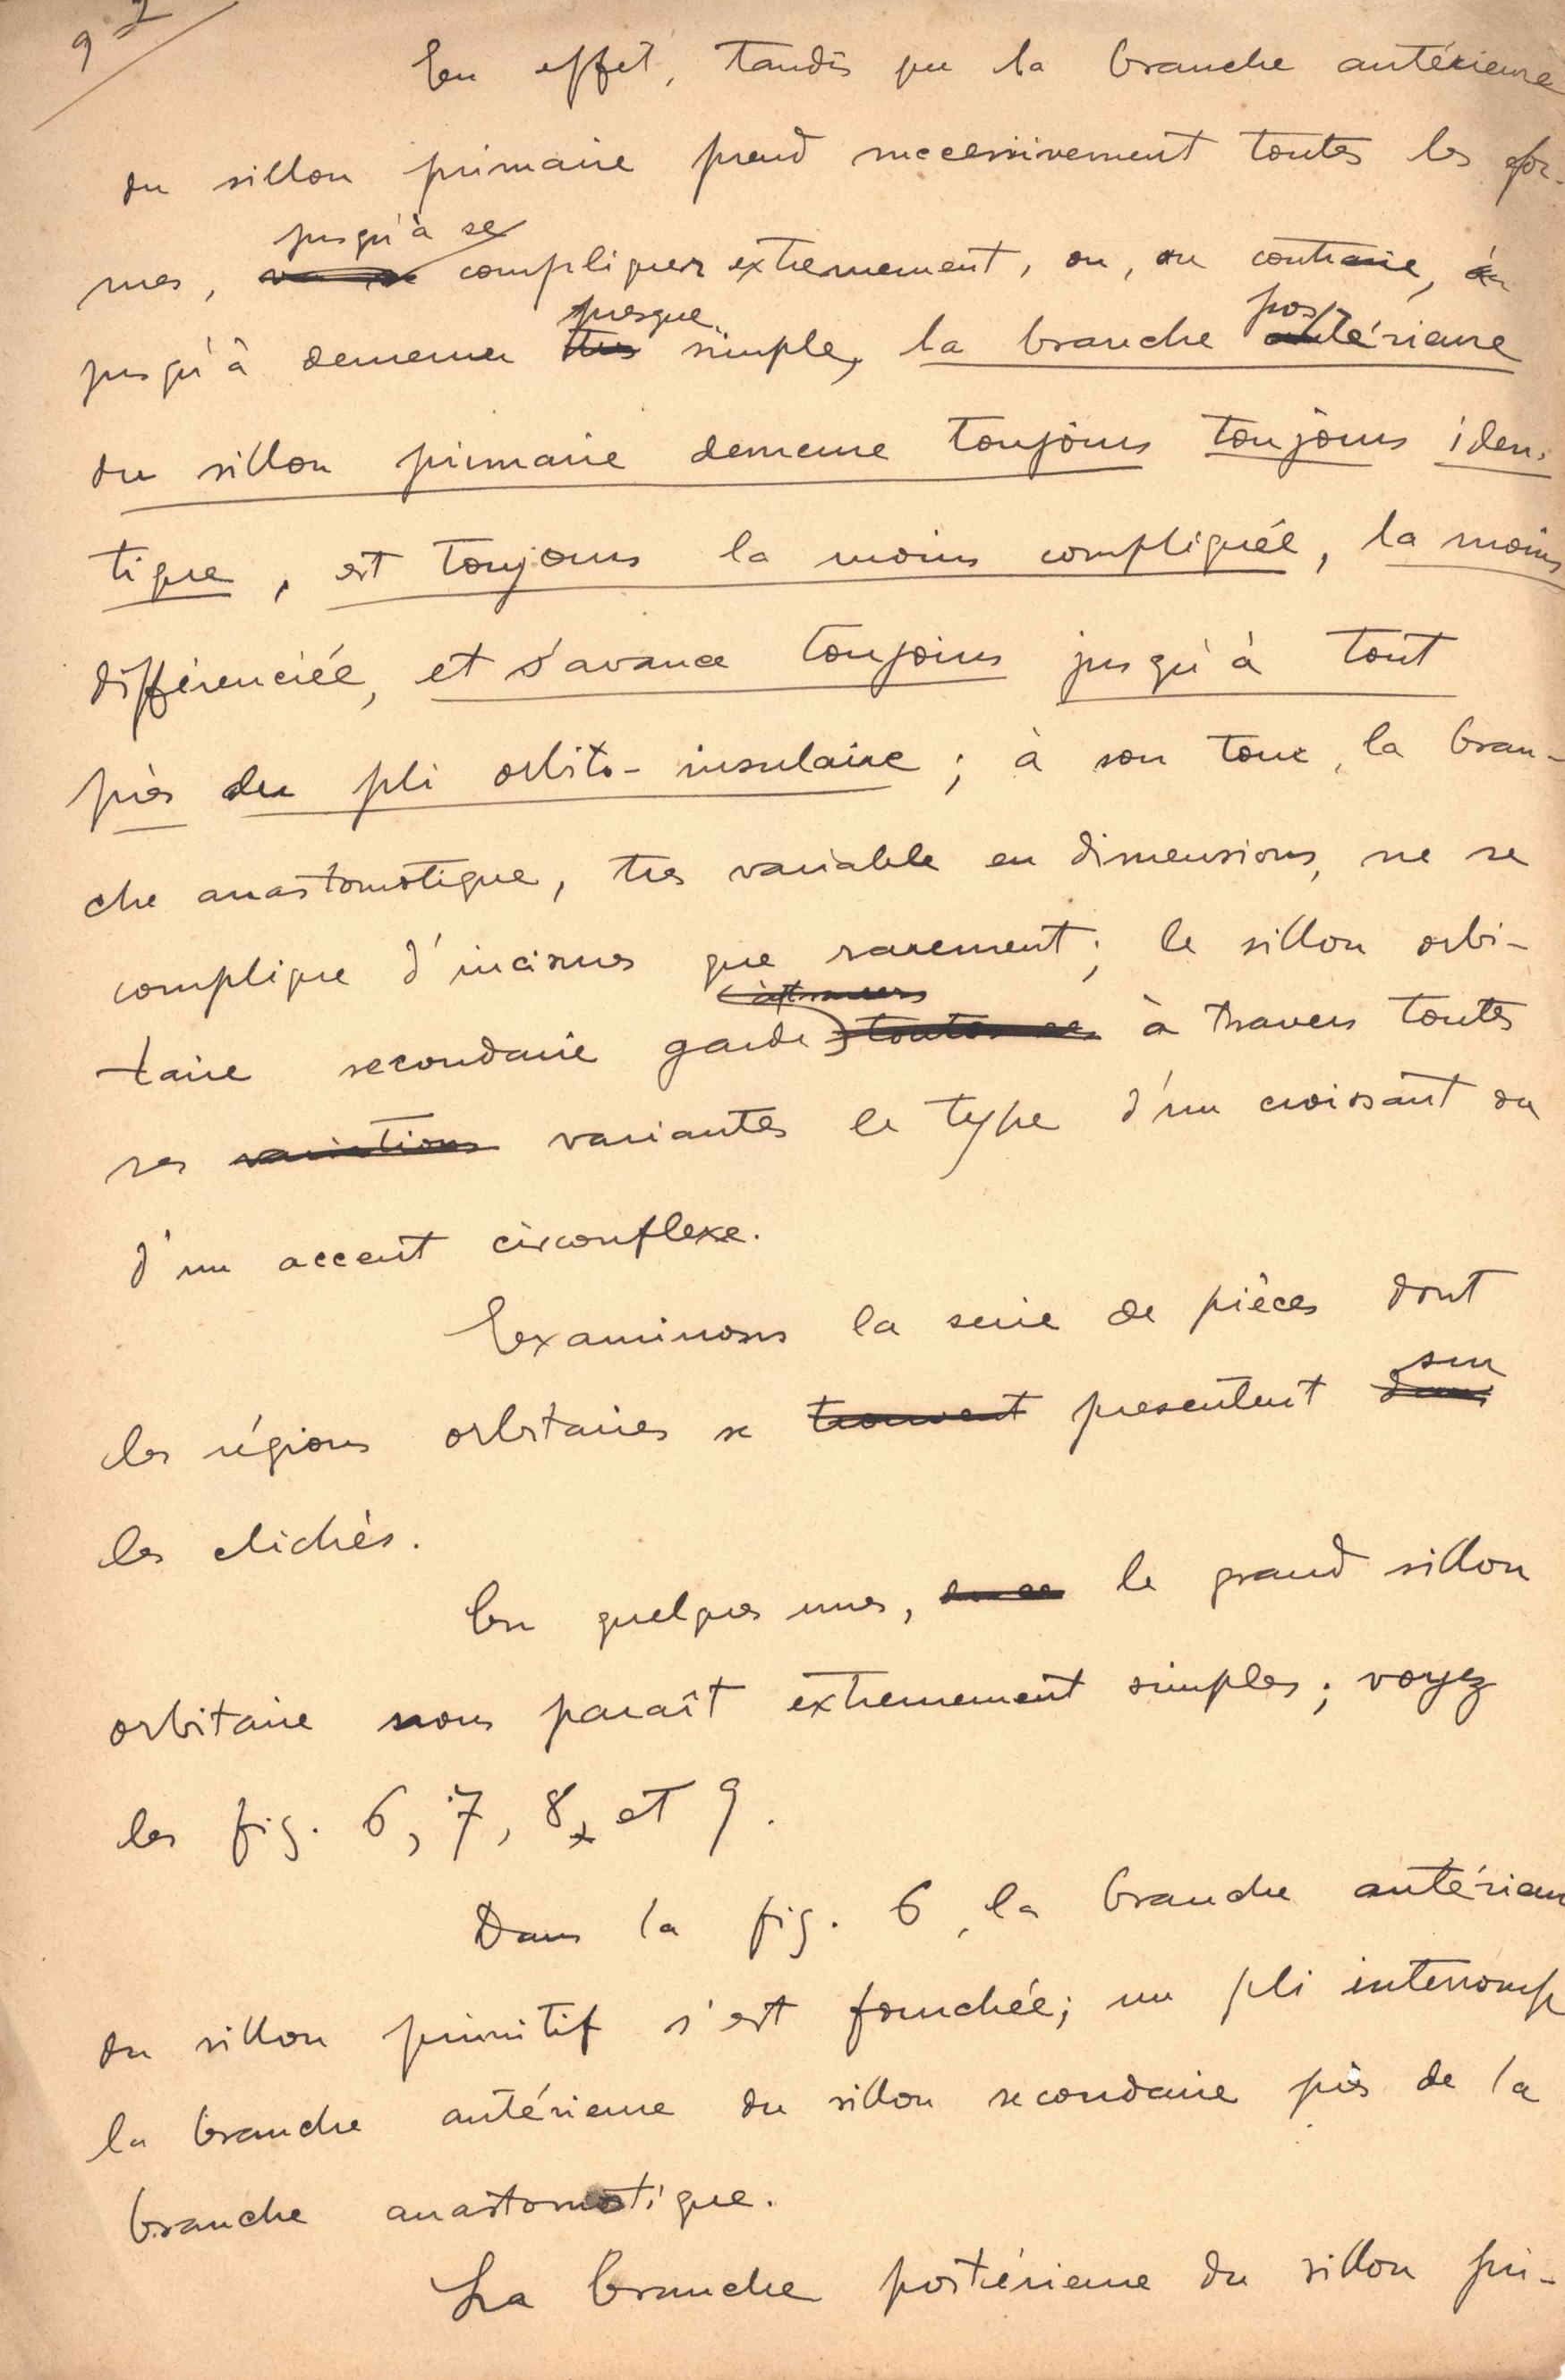 92
En effet, tandis que la branche antérieure
du sillon primaire prend successivement toutes les for-
jusqu'à se
mes, compliquer extremement, ou, au contraire,
presque pos
jusqu'à demeurer simple, la branche térieure
du sillon primaire demeure toujours toujours iden-
tique, est toujours la moins compliquée, la moins
différenciée, et s'avance toujours jusqu'à tout
près du pli orbito-insulaire; à son tour, la bran-
che anastomotique, tres variable en dimensions, ne se
complique d'incisures que rarement; le sillon orbi-
taire secondaire garde à travers toutes
ses variations variantes le type d'un croissant ou
d'un accent circonflexe.
Examinons la serie de pièces dont
sur
les régions orbitaires se trouvent presentent dans
les clichés.
En quelques unes, le grand sillon
orbitaire nous paraît extremement simples; voyez
les fig. 6, 7, 8, et 9.
Dans la fig. 6, la branche antérieur
du sillon primitif s'est fourchée; un pli interromp
la branche antérieure du sillon secondaire près de la
branche anastomotique.
La branche postérieure du sillon pri-